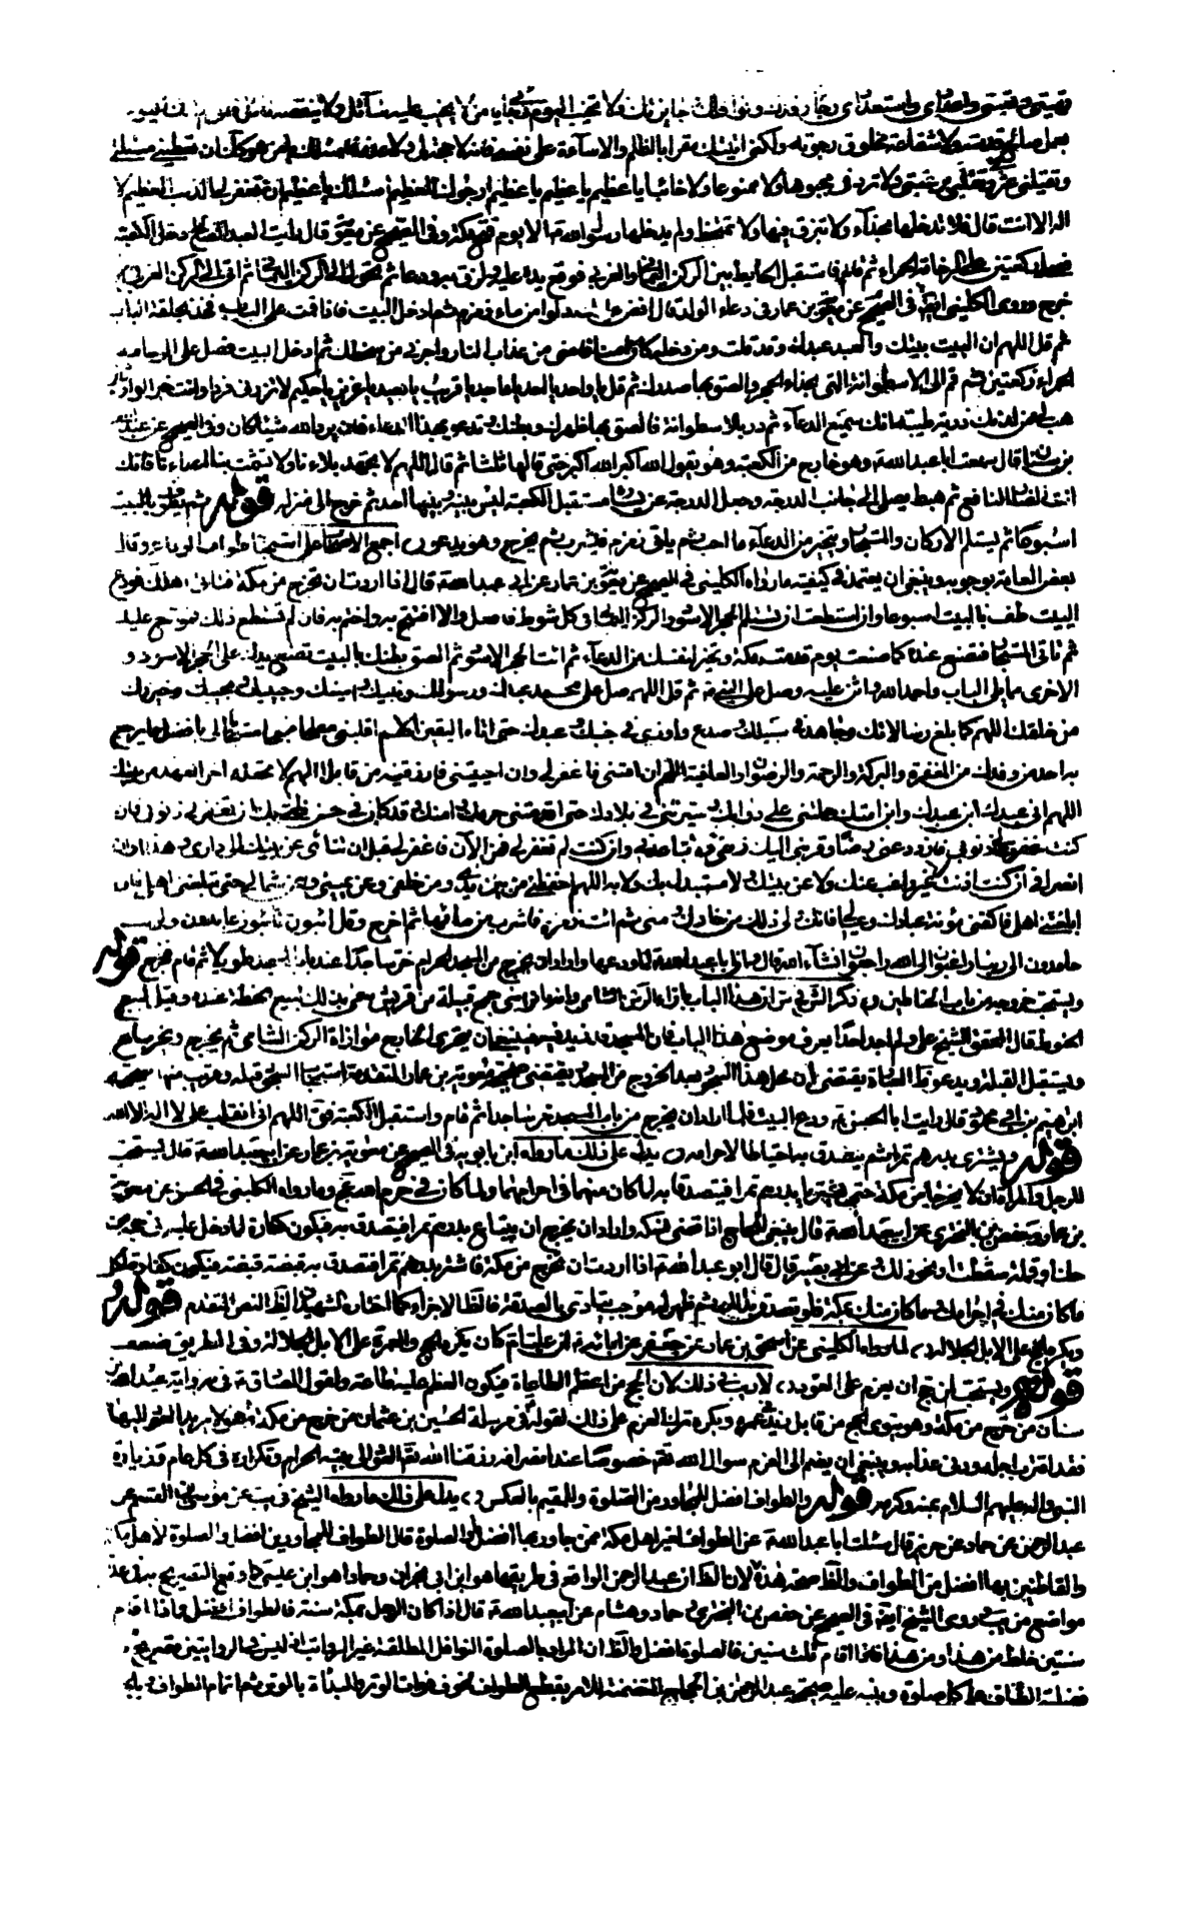 وتهيئتي وتعبيتي واعدادي واستعدادي رجاء رفدك ونوافلك وجايزتك فلا تخيب اليوم رجائي يا من لا يخيب عليه سائل ولا ينقصه نائل
بعمل صالح قدمته ولا شفاعة مخلوق رجوته ولكني اتيتك مقرا بالظلم والاساءة على نفسي فانه لا حجة لي ولا عذر فاسئلك يا من هو كذلك ان تعطيني مسئلتي
وتقيلني عثرتي وتقلبني برغبتي ولا تردني مجبوها ولا ممنوعا ولا خائبا يا عظيم يا عظيم يا عظيم ارجوك للعظيم اسئلك يا عظيم ان تغفر لي الذنب العظيم لا
اله الا انت قال فلا تدخلها بحذاء ولا تبزق فيها ولا تمتخط ولم يدخلها رسول الله الا يوم فتح مكة وفي الصحيح عن معوية قال رايت العبد الصالح دخل الكعبة
فصلى ركعتين على الرخامة الحمراء ثم قام فاستقبل الحايط بين الركن اليماني والغربي فوقع يده عليه ولزق به ودعا ثم تحول الى الركن اليماني ثم اتى الركن الغربي ثم
خرج وروى الكليني ايضا في الصحيح عن معوية بن عمار في دعاء الولد قال افض عليك دلوا من ماء زمزم ثم ادخل البيت فاذا قمت على الباب فخذ بحلقة الباب
ثم قل اللهم ان البيت بيتك والعبد عبدك وقد قلت ومن دخله كان امنا فامني من عذابك النار واجرني من سخطك ثم ادخل البيت فصل على الرخامة
الحمراء ركعتين ثم قم الى الاسطوانة التي بحذاء الحجر والصق بها صدرك ثم قل يا واحد يا احد يا ماجد يا قريب يا بعيد يا عزيز يا حكيم لا تذرني فردا وانت خير الوارثين
هب لي من لدنك ذرية طيبة انك سميع الدعاء ثم در بالاسطوانة فالصق بها ظهرك وبطنك وتدعو بهذا الدعاء فان يرد الله شيئا كان وفي الصحيح عن عبد الله
بن سنان قال سمعت ابا عبد الله وهو خارج من الكعبة وهو يقول الله اكبر الله اكبر حتى قالها ثلثا ثم قال اللهم لا تجهد بلاءنا ولا تشمت بنا اعداءنا فانك
انت الضار النافع ثم هبط يصلي الى جانب الدرجة وجعل الدرجة عن يساره مستقبل الكعبة ليس بينه وبينها احد ثم خرج الى منزله قوله ثم يطوف بالبيت
اسبوعا ثم يستلم الاركان والمستجار ويتخير من الدعاء ما احب ثم ياتي زمزم فيشرب ثم يخرج وهو يدعو، اجمع الاصحاب على استحباب طواف الوداع وقال
بعض العامة بوجوبه وينبغي ان يعتمد في كيفيته ما رواه الكليني في الصحيح عن معوية بن عمار عن ابي عبد الله قال اذا اردت ان تخرج من مكة فتاتي اهلك فودع
البيت طف بالبيت اسبوعا وان استطعت ان تستلم الحجر الاسود والركن اليماني في كل شوط فافعل والا فافتتح به واختم به فان لم تستطع ذلك فموسع عليك
ثم تاتي المستجار فتصنع عنده كما صنعت يوم قدمت مكة وتخير لنفسك من الدعاء ثم ائت الحجر الاسود ثم الصق بطنك بالبيت تضع يدك على الحجر الاسود و
الاخرى مما يلي الباب واحمد الله واثن عليه وصل على النبي ثم قل اللهم صل على محمد عبدك ورسولك ونبيك وامينك وحبيبك ونجيبك وخيرتك
من خلقك اللهم كما بلغ رسالاتك وجاهد في سبيلك وصدع بامرك واوذي في جنبك وعبدك حتى اتاه اليقين اللهم اقلبني مفلحا منجحا مستجابا لي بافضل ما يرجع
به احد من وفدك من المغفرة والبركة والرحمة والرضوان والعافية اللهم ان امتني فاغفر لي وان احييتني فارزقنيه من قابل اللهم لا تجعله اخر العهد من بيتك
اللهم اني عبدك ابن عبدك وابن امتك حملتني على دوابك وسيرتني في بلادك حتى اقدمتني حرمك وامنك وقد كان في حسن ظني بك ان تغفر لي ذنوبي فان
كنت غفرت لي ذنوبي فازدد عني رضا وقربني اليك زلفى ولا تباعدني وان كنت لم تغفر لي فمن الآن فاغفر لي قبل ان تنأى عن بيتك داري وهذا اوان
انصرافي ان كنت اذنت لي غير راغب عنك ولا عن بيتك ولا مستبدل بك ولا به اللهم احفظني من بين يدي ومن خلفي وعن يميني وعن شمالي حتى تبلغني اهلي فاذا
ابلغتني اهلي فاكفني مؤنة عبادك وعيالي فانك ولي ذلك من خلقك ومني ثم ائت زمزم فاشرب من مائها ثم اخرج وقل ائبون تائبون عابدون لربنا
حامدون الى ربنا راغبون الى الله راجعون انشاء الله قال وان ابا عبد الله لما ودعها واراد ان يخرج من المسجد الحرام خر ساجدا عند باب المسجد طويلا ثم قام فخرج قوله
ويستحب خروجه من باب الحناطين، ذكر الشهيد في س ان هذا الباب بازاء الركن الشامي وانه باب بني جمح قبيلة من قريش سمي بذلك لبيع الحنطة عنده وقيل لبيع
الحنوط قال المحقق الشيخ علي ولم اجد احدا يعرف موضع هذا الباب فان المسجد قد زيد فيه فينبغي ان يتحرى الخارج موازاة الركن الشامي ثم يخرج ويخر ساجدا
ويستقبل القبلة ويدعو، ظاهر العبارة يقتضي ان محل هذا السجود بعد الخروج من المسجد ومقتضى صحيحة معوية بن عمار المتقدمة استحباب السجود قبله وقريب منها صحيحة
ابراهيم بن ابي محمود قال رايت ابا الحسن ودع البيت فلما اراد ان يخرج من باب المسجد خر ساجدا ثم قام واستقبل الكعبة فقال اللهم اني انقلب على لا اله الا الله
قوله ويشتري بدرهم تمرا ثم يتصدق به احتياطا لاحرامه، يدل على ذلك ما رواه ابن بابويه في الصحيح عن معوية بن عمار عن ابي عبد الله قال يستحب
للرجل والمراة ان لا يخرجا من مكة حتى يشتريا بدرهم تمرا فيتصدقا به لما كان منهما في احرامهما ولما كان في حرم الله عز وجل وما رواه الكليني في الحسن عن معوية
بن عمار وحفص بن البختري عن ابي عبد الله قال ينبغي للحاج اذا قضى نسكه واراد ان يخرج ان يبتاع بدرهم تمرا فيتصدق به فيكون كفارة لما دخل عليه في حجه من
حك او قملة سقطت او نحو ذلك وعن ابي بصير قال قال ابو عبد الله اذا اردت ان تخرج من مكة فاشتر بدرهم تمرا فتصدق به قبضة قبضة فيكون كفارة لكل
ما كان منك في احرامك وما كان منك بمكة فلو تصدق بذلك ثم ظهر له موجب يتادى بالصدقة فالظ الاجزاء كما اختاره الشهيدان لظ النص المتقدم قوله
ويكره الحج على الابل الجلالة، لما رواه الكليني عن اسحق بن عمار عن جعفر عن ابائه ان عليا كان يكره الحج والعمرة على الابل الجلالة وفي الطريق ضعف
قوله ويستحب لمن حج ان يعزم على العود، لا ريب في ذلك لان الحج من اعظم الطاعات فيكون العزم عليه طاعة ولقول الصادق في رواية عبد الله بن
سنان من خرج من مكة وهو ينوي الحج من قابل زيد في عمره ويكره ترك العزم على ذلك لقوله في مرسلة الحسين بن عثمان من خرج من مكة وهو لا يريد العود اليها
فقد اقترب اجله ودنى عذابه وينبغي ان يضم الى العزم سوال الله تع خصوصا عند انصرافه رزقنا الله تع العود الى بيته الحرام وتكراره في كل عام وزيارة
النبي واله عليهم السلام بمنه وكرمه قوله والطواف افضل للمجاور من الصلوة وللمقيم بالعكس، يدل على ذلك ما رواه الشيخ في يب عن موسى بن القسم عن
عبد الرحمن عن حماد عن حريز قال سئلت ابا عبد الله عن الطواف لغير اهل مكة ممن جاور بها افضل او الصلوة قال الطواف للمجاورين افضل والصلوة لاهل مكة
والقاطنين بها افضل من الطواف والظ صحة هذه لان الظ ان عبد الرحمن الواقع في طريقها هو ابن ابي نجران وحماد هو ابن عيسى كما وقع التصريح به في عدة
مواضع من يب وروى الشيخ ايضا في الصحيح عن حفص بن البختري وحماد وهشام عن ابي عبد الله قال اذا كان الرجل بمكة سنة فالطواف افضل واذا اقام
سنتين خلط من هذا ومن هذا فاذا اقام ثلث سنين فالصلوة افضل والظ ان المراد بالصلوة النوافل المطلقة غير الرواتب اذ ليس في الروايتين تصريح
فضيلة الطواف على كل صلوة وينبه عليه صحيحة عبد الرحمن بن الحجاج المتضمنة للامر بقطع الطواف لخوف فوات الوتر والبداة بالوتر ثم اتمام الطواف